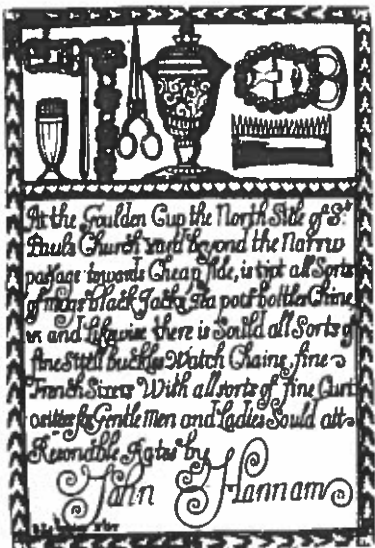 At the Goulden Cup the North Side of St.
Pauls Church yard beyond the Narrow
passage towards Cheap side, is tipt all Sorts
of mugs black Jacks Tea pots bottles Chine
and Likewise there is Sould all Sorts of
fine Steell buckles Watch Chaine, fine
French Sizers With all sorts of fine Curi
for Gentle men and Ladies Sould att
Resonable Rates by
John Hannam